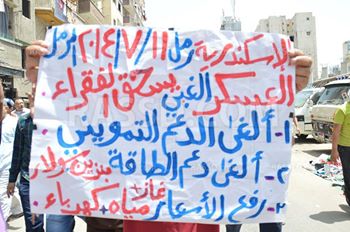 الاسكندرية رمل ٢٠١٤/٧/١١ الرمل
العسكر الغبي يسحق الفقراء .
١- ألغى الدعم التمويني .
٢- ألغى دعم الطاقة بنزين سولار غاز
٣- رفع الأسعار مياه + كهرباء .